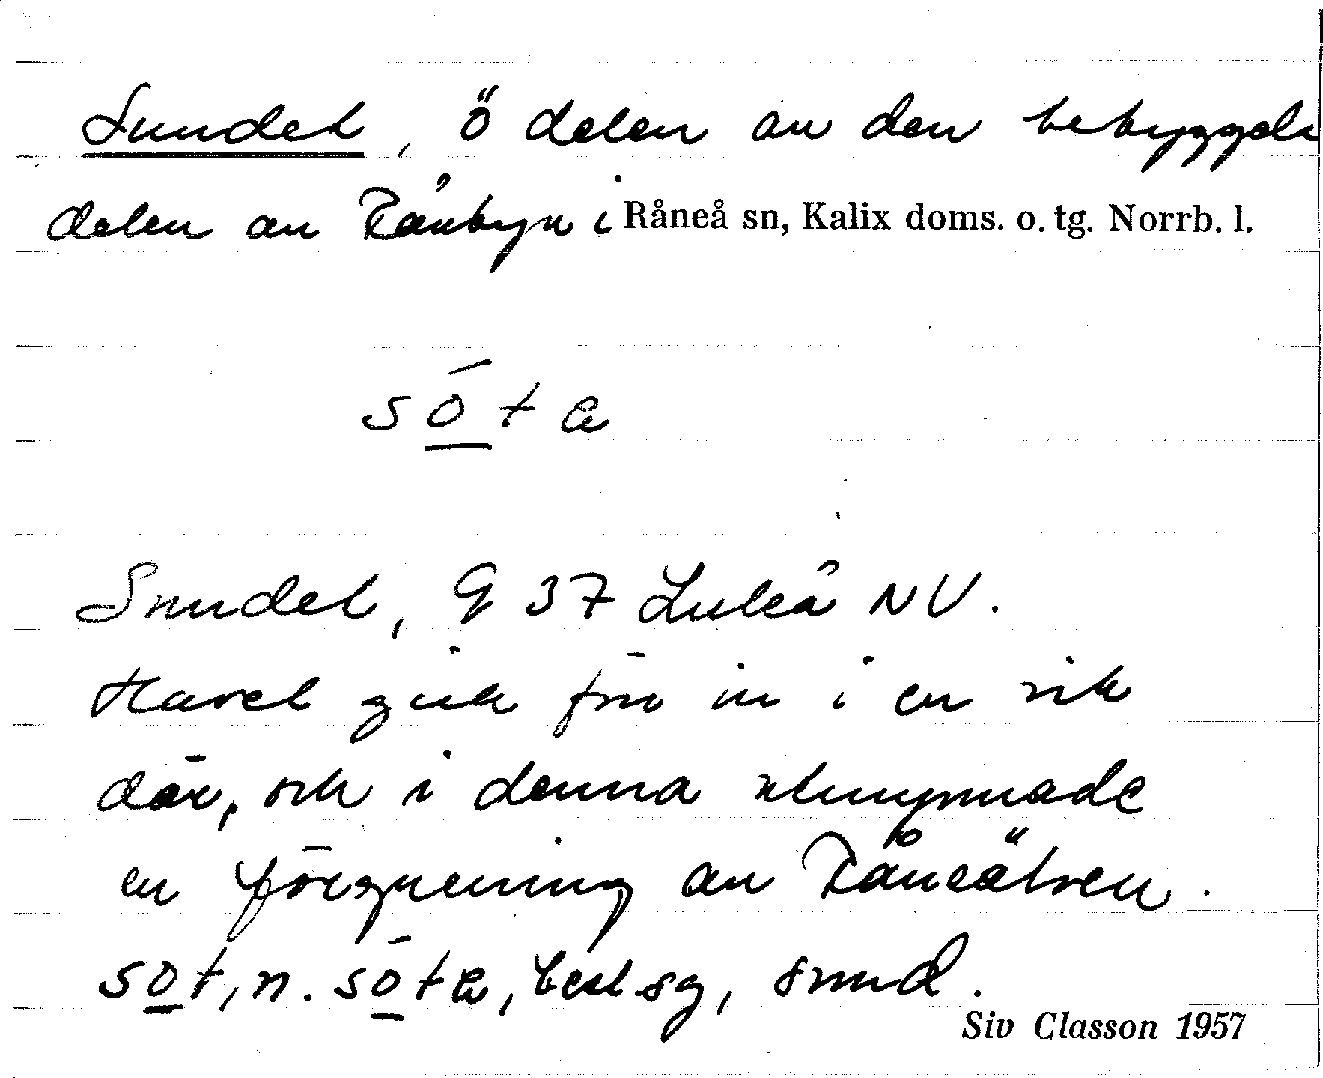 Sundet, ö delen av den bebyggda
delen av Rånbyn i Råneå sn, Kalix doms. o. tg. Norrb. l.
so̲ta
Sundet, 9 37 Luleå NV.
Havet gick förr in i en vik
där, och i denna utmynnade
en förgrening av Råneälven.
so̲t, n. so̲ta, best sg, sund.
Siv Classon 1957